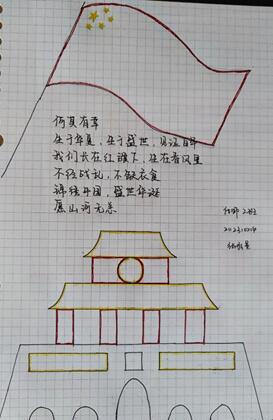 何其有幸
生于华夏，生于盛世，见证百年
我们长在红旗下，生在春风里
不经战乱，不缺衣食
锦绣开国，盛世华诞
愿山河无恙